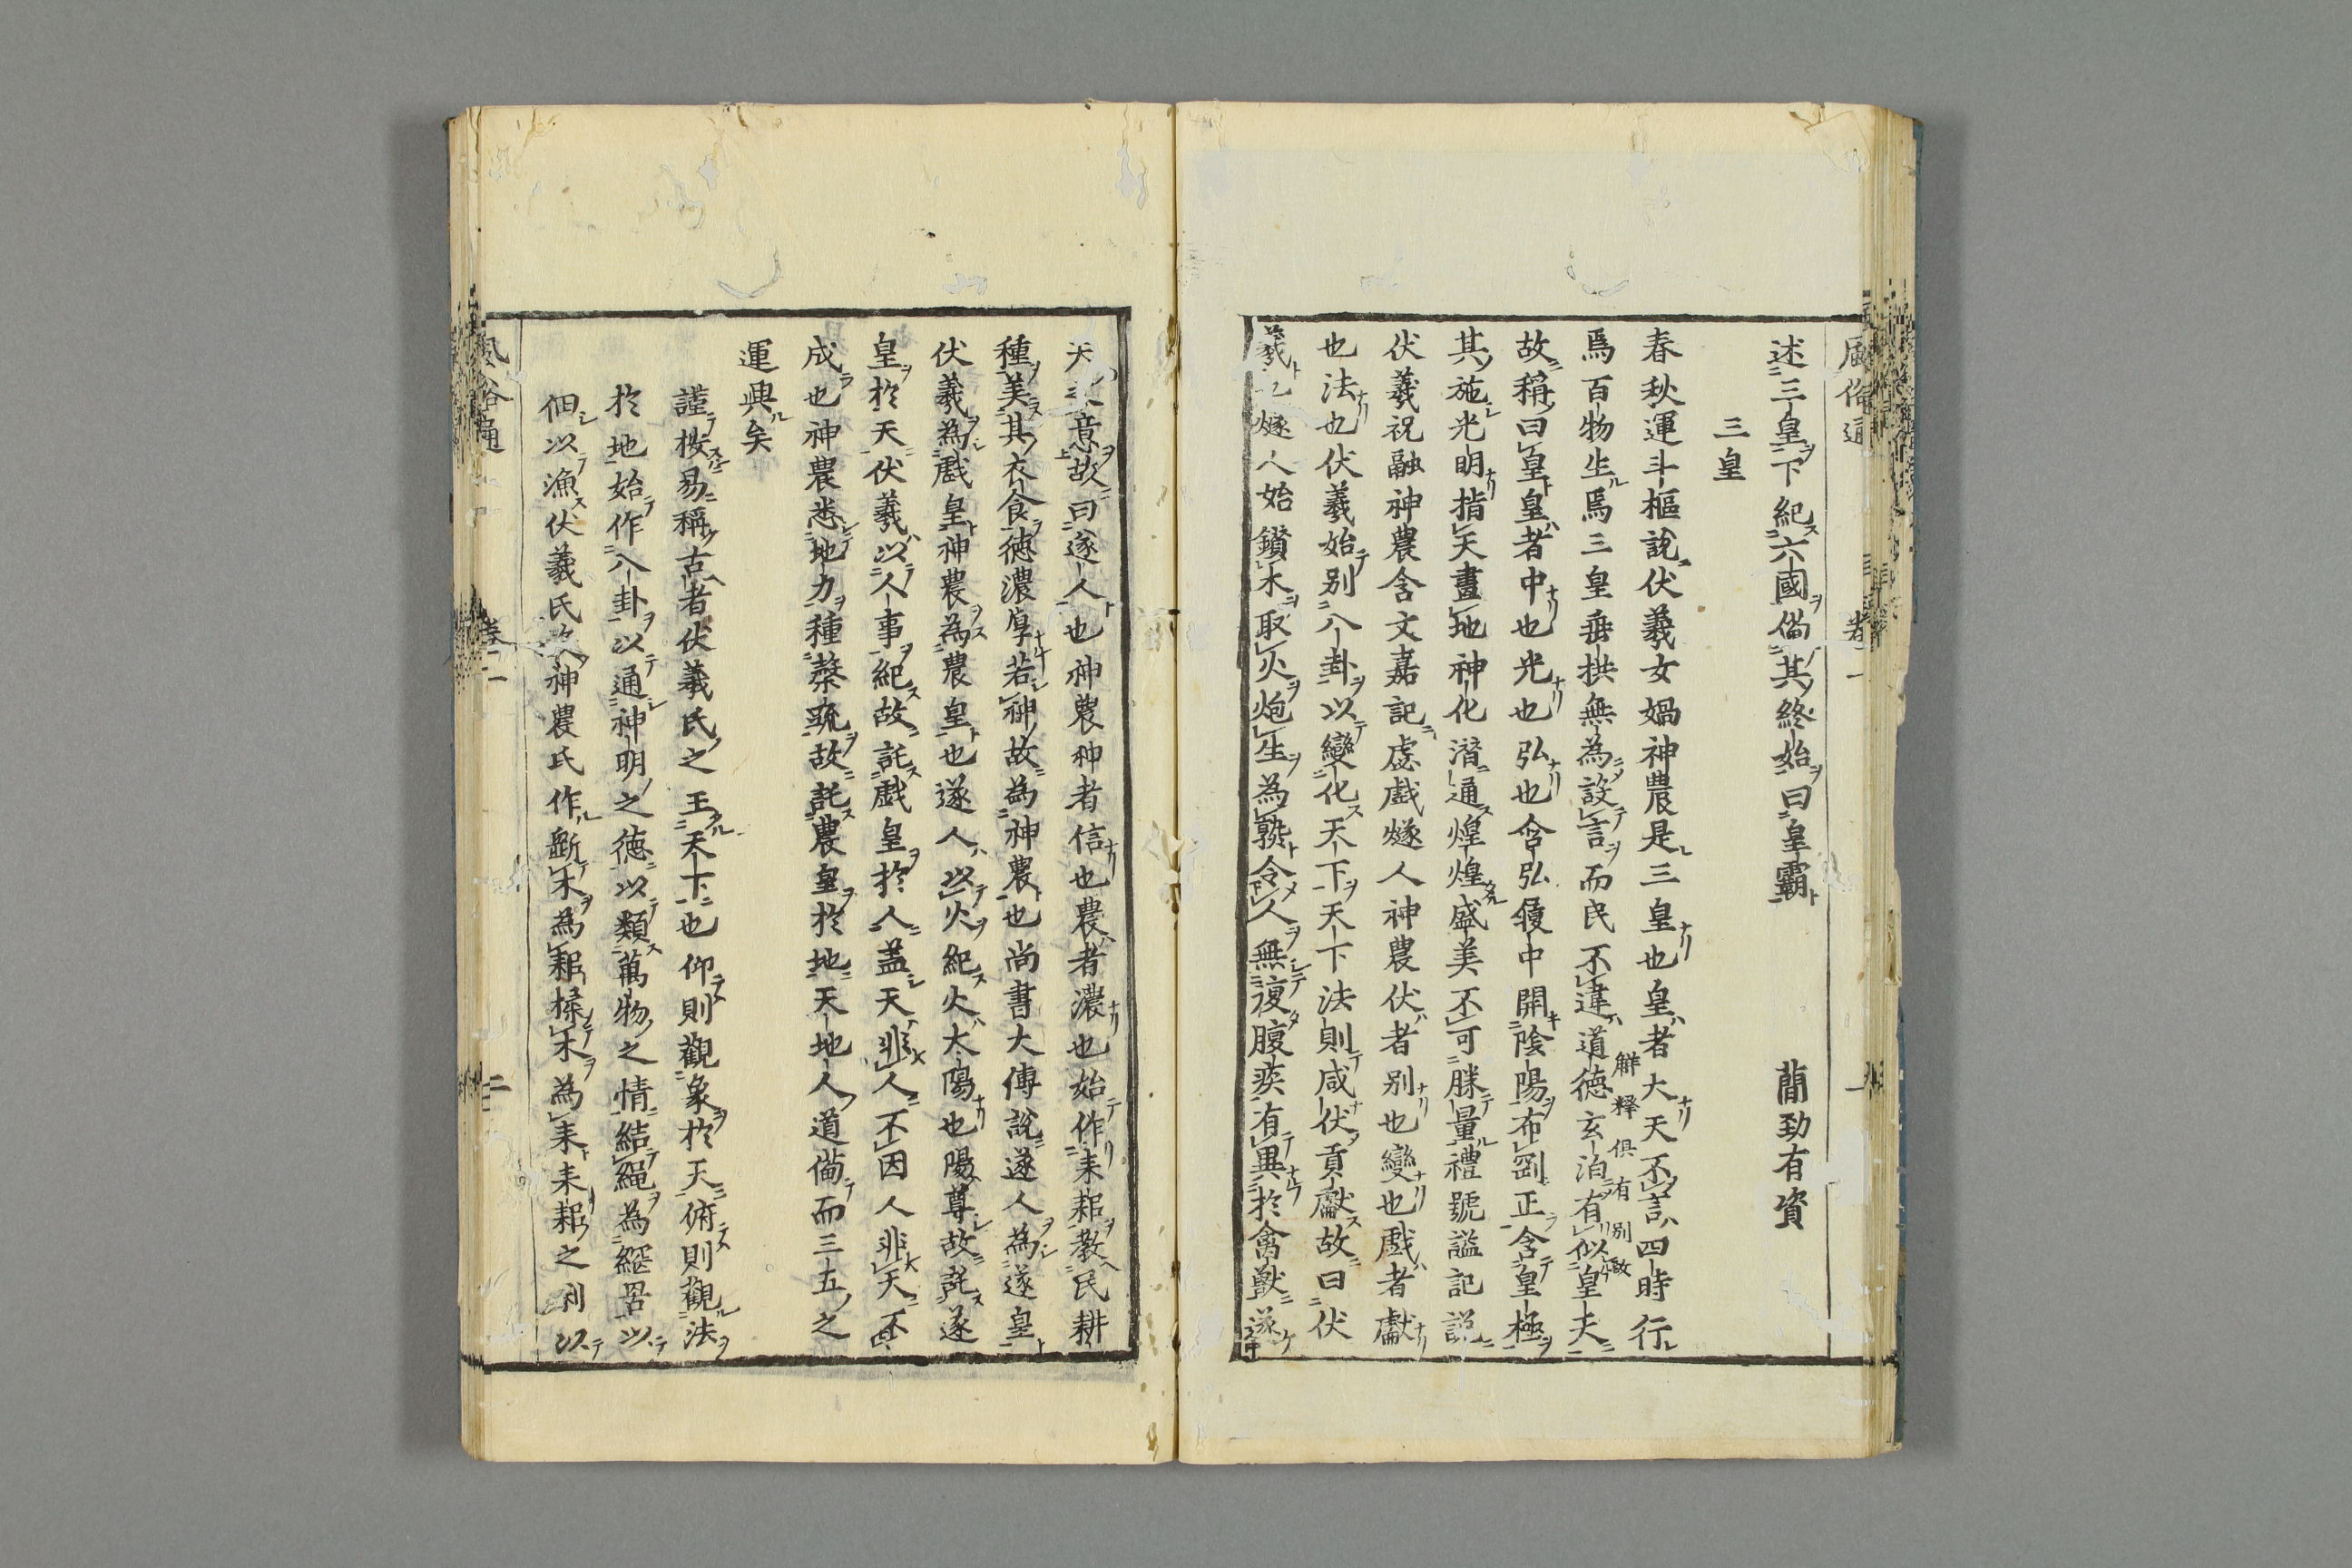 述三皇下紀六國備其終始曰皇霸 蕳勁有資
三皇
春秋運斗樞說伏羲女媧神農是三皇也皇者大天不言四時行
焉百物生焉三皇垂拱無為設言而民不違道德玄泊有似皇天
觧釋俱有別啟
故稱曰皇皇者中也光也弘也含弘履中開陰陽布剛正含皇極
其施光明指天畫地神化潛通煌煌盛美不可勝量禮號謚記說
伏羲祝融神農含文嘉記虙戲燧人神農伏者別也變也戲者獻
也法也伏羲始別八卦以變化天下天下法則咸伏貢獻故曰伏
羲也燧人始鑽木取火炮生為熟令人無復腹疾有異於禽獸遂
天之意故曰遂人也神農神者信也農者濃也始作耒耜教民耕
種美其衣食德濃厚若神故為神農也尚書大傳說遂人為遂皇
伏羲為戲皇神農為農皇也遂人以火紀火太陽也陽尊故託遂
皇於天伏羲以人事紀故託戲皇於人蓋天非人不因人非天不
成也神農悉地力種穀疏故託農皇於地天地人道備而三五之
運興矣
謹按易稱古者伏羲氏之王天下也仰則觀象於天俯則觀法
於地始作八卦以通神明之德以類萬物之情結繩為網罟以
佃以漁伏羲氏沒神農氏作斲木為耜揉木為耒耒耜之利以
風俗通 卷一 一
風俗通 卷一 二